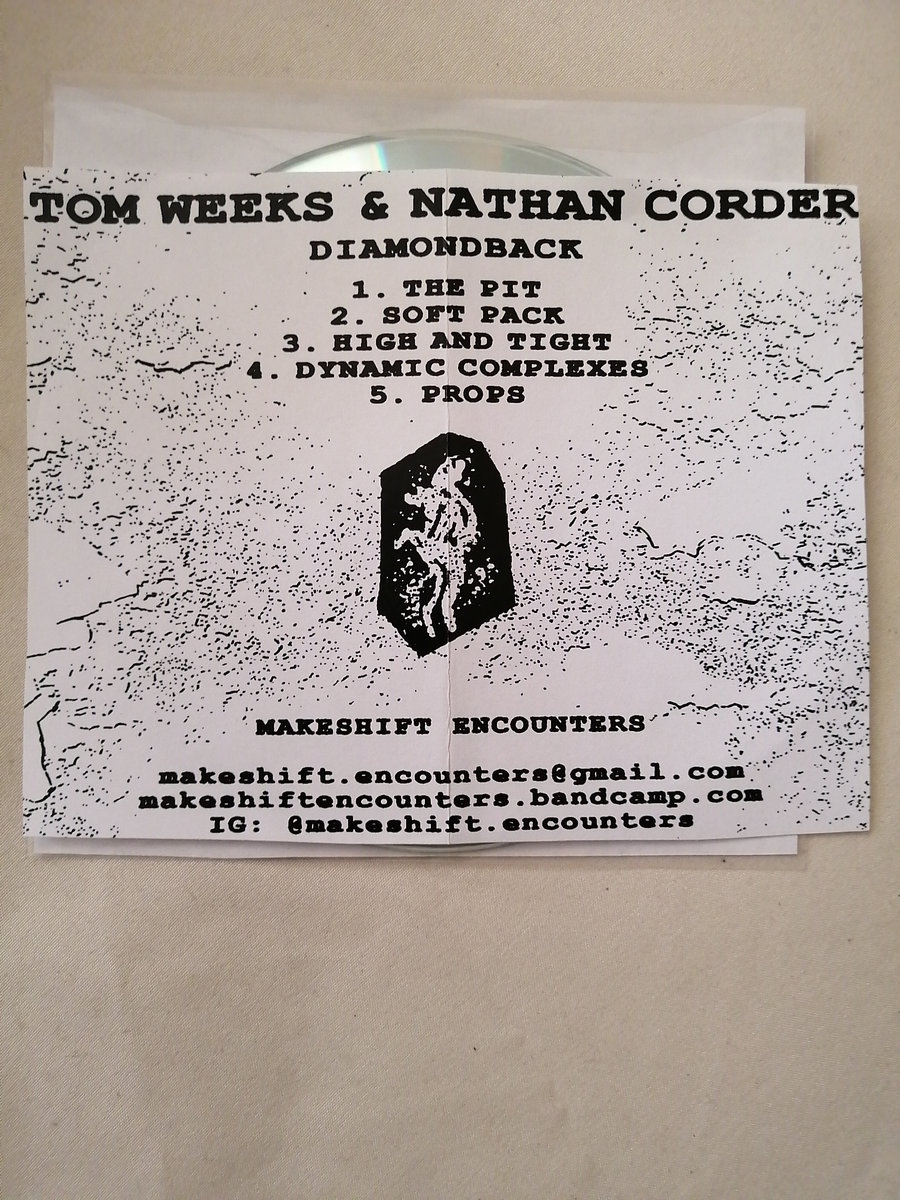 TOM WEEKS & NATHAN CORDER
DIAMONDBACK
1. THE PIT
2. SOFT PACK
3. HIGH AND TIGHT
4. DYNAMIC COMPLEXES
5. PROPS
MAKESHIFT ENCOUNTERS
makeshift.encounters@gmail.com
makeshiftencounters.bandcamp.com
IG: @makeshift.encounters